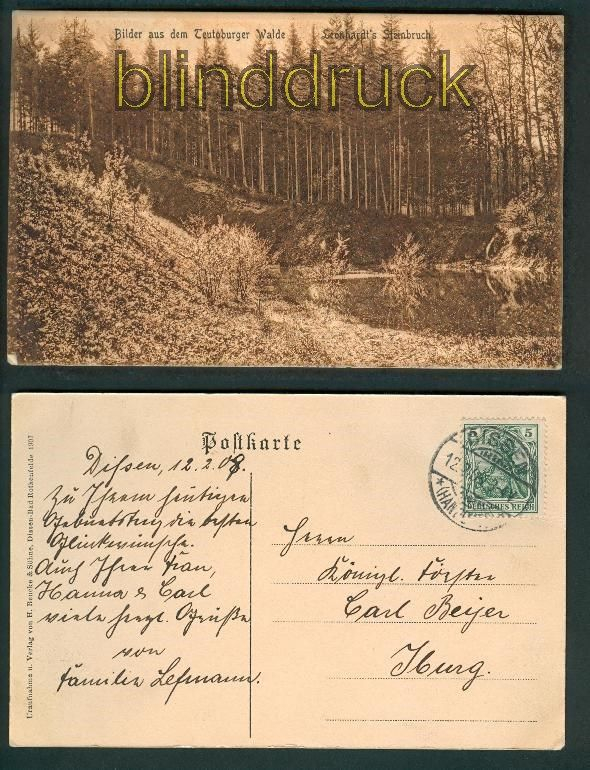 Bilder aus dem Teutoburger Walde Leonhardt's Steinbruch
blinddruck
Postkarte
Dissen, 12.2.08.
Zu Ihrem heutigen
Geburtstag die besten
Glückwünsche.
Auch Ihrer Frau,
Hanna & Carl
viele herzl. Grüße
von
Familie Lehmann.
5 5
DEUTSCHES REICH
DISSEN
12.
* (HAN
Herrn
Königl. Förster
Carl Beijer
Iburg.
Uraufnahme u. Verlag von H. Beucke & Söhne, Dissen-Bad Rothenfelde 1907